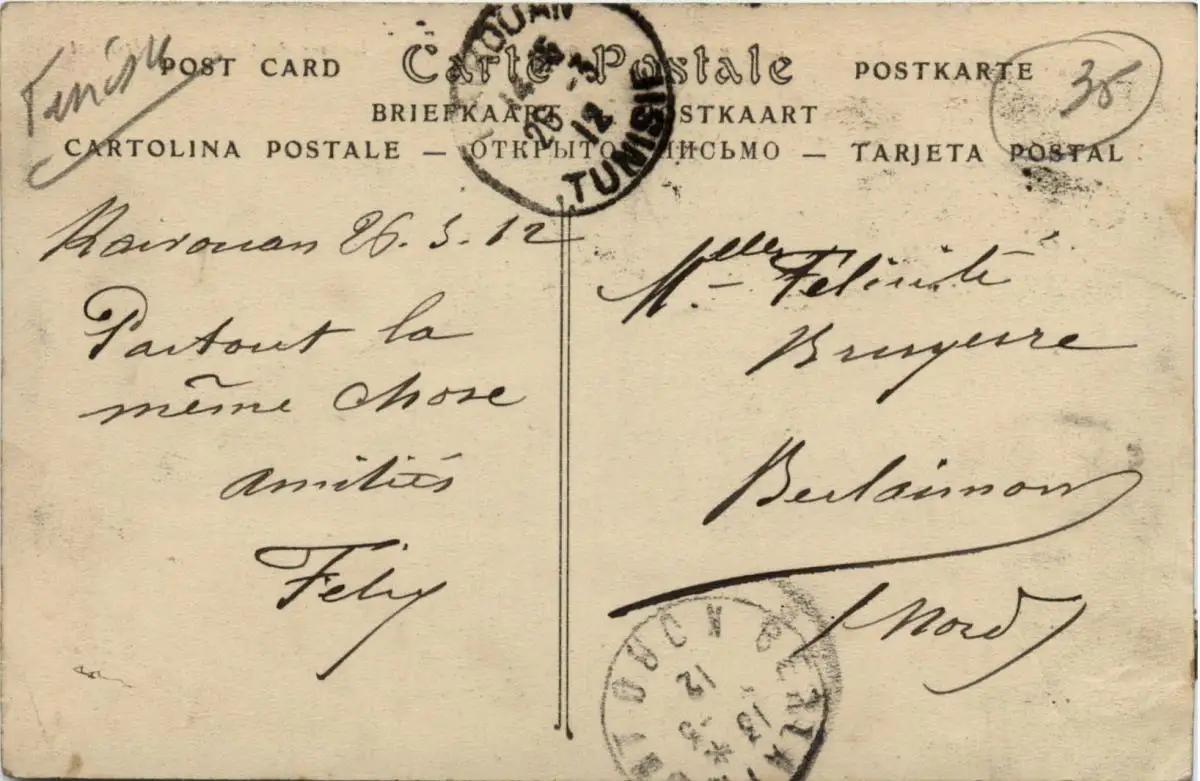 Tunisie
POST CARD
Carte Postale
POSTKARTE
35
BRIEFKAART
POSTKAART
CARTOLINA POSTALE — ОТКРЫТОЕ ПИСЬМО — TARJETA POSTAL
KAIROUAN
26 -3
12
TUNISIE
Kairouan 26.3.12
Partout la
même chose
amitiés
Felix
Melle Félicité
Bruyerre
Berlaimont
(Nord)
12
NORD